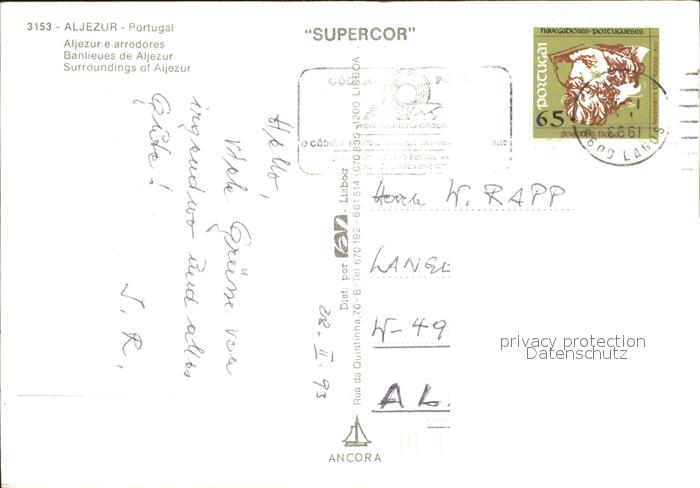 3153 - ALJEZUR - Portugal
Aljezur e arredores
Banlieues de Aljezur
Surroundings of Aljezur
"SUPERCOR"
NAVEGADORES PORTUGUESES
PORTUGAL
65
600 LAGOS
CÓDIGO
O CÓDIGO
Hallo,
viele Grüsse von
irgendwo und alles
Gute!
J. R.
28. II. 93
Dist. por - Lisboa
Rua da Quintinha, 70-B-Tel. 670 192 - 661 514 - 670 839 - 1200 LISBOA
Herrn W. RAPP
LANGE
W-49
AL
privacy protection
Datenschutz
ANCORA